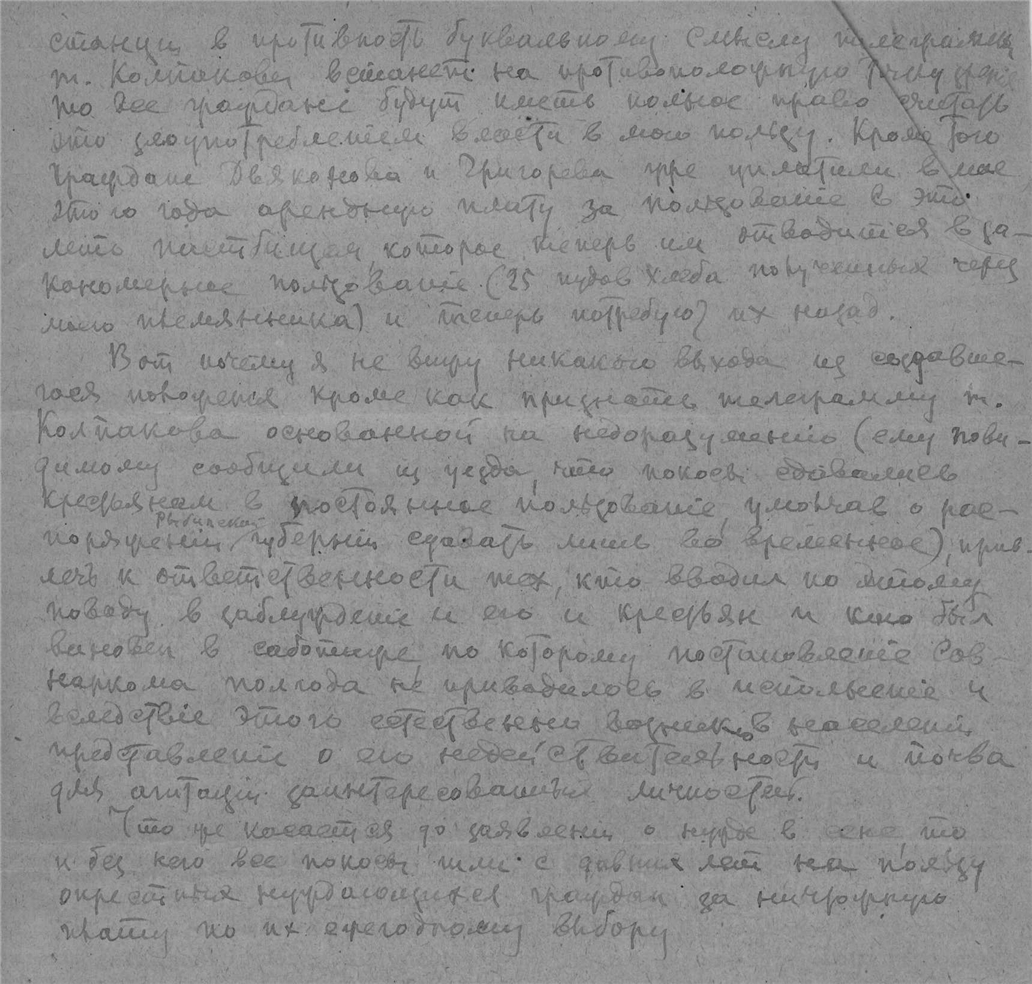 станціи в противность буквальному смыслу телеграммы
т. Колпакова встанет на противоположную точку зрѣнія
то все граждане будут имѣть полное право считать
это злоупотребленіем власти в мою пользу. Кромѣ того
граждане Дьяконова и Григорева уже уплатили в мае
этого года арендную плату за пользованіе в это
лето пастбищем, которое теперь им отводится в за-
кономерное пользованіе (25 пудов хлеба полученных через
моего племянника) и теперь потребуют их назад.
Вот почему я не вижу никакого выхода из создавше-
гося положенія кроме как признать телеграмму т.
Колпакова основанной на недоразумѣніи (ему пови-
димому сообщили из уезда, что покосы сдавались
крестьянам в постоянное пользованіе, умолчав о рас-
поряженіи Рыбинской губерніи сдавать лишь во временное), прив-
лечь к ответственности тех, кто вводил по этому
поводу в заблужденіе и его и крестьян и кто был
виновен в саботаже, по которому постановленіе Сов-
наркома полгода не приводилось в исполненіе и
вследствіе этого естественно возникло в населеніи
представленіе о его недействительности и почва
для агитаціи заинтересованных личностей.
Что же касается до заявленія о нужде в сене то
и без него все покосы шли с давних лет на пользу
окрестных нуждающихся граждан за ничтожную
плату по их ежегодному выбору